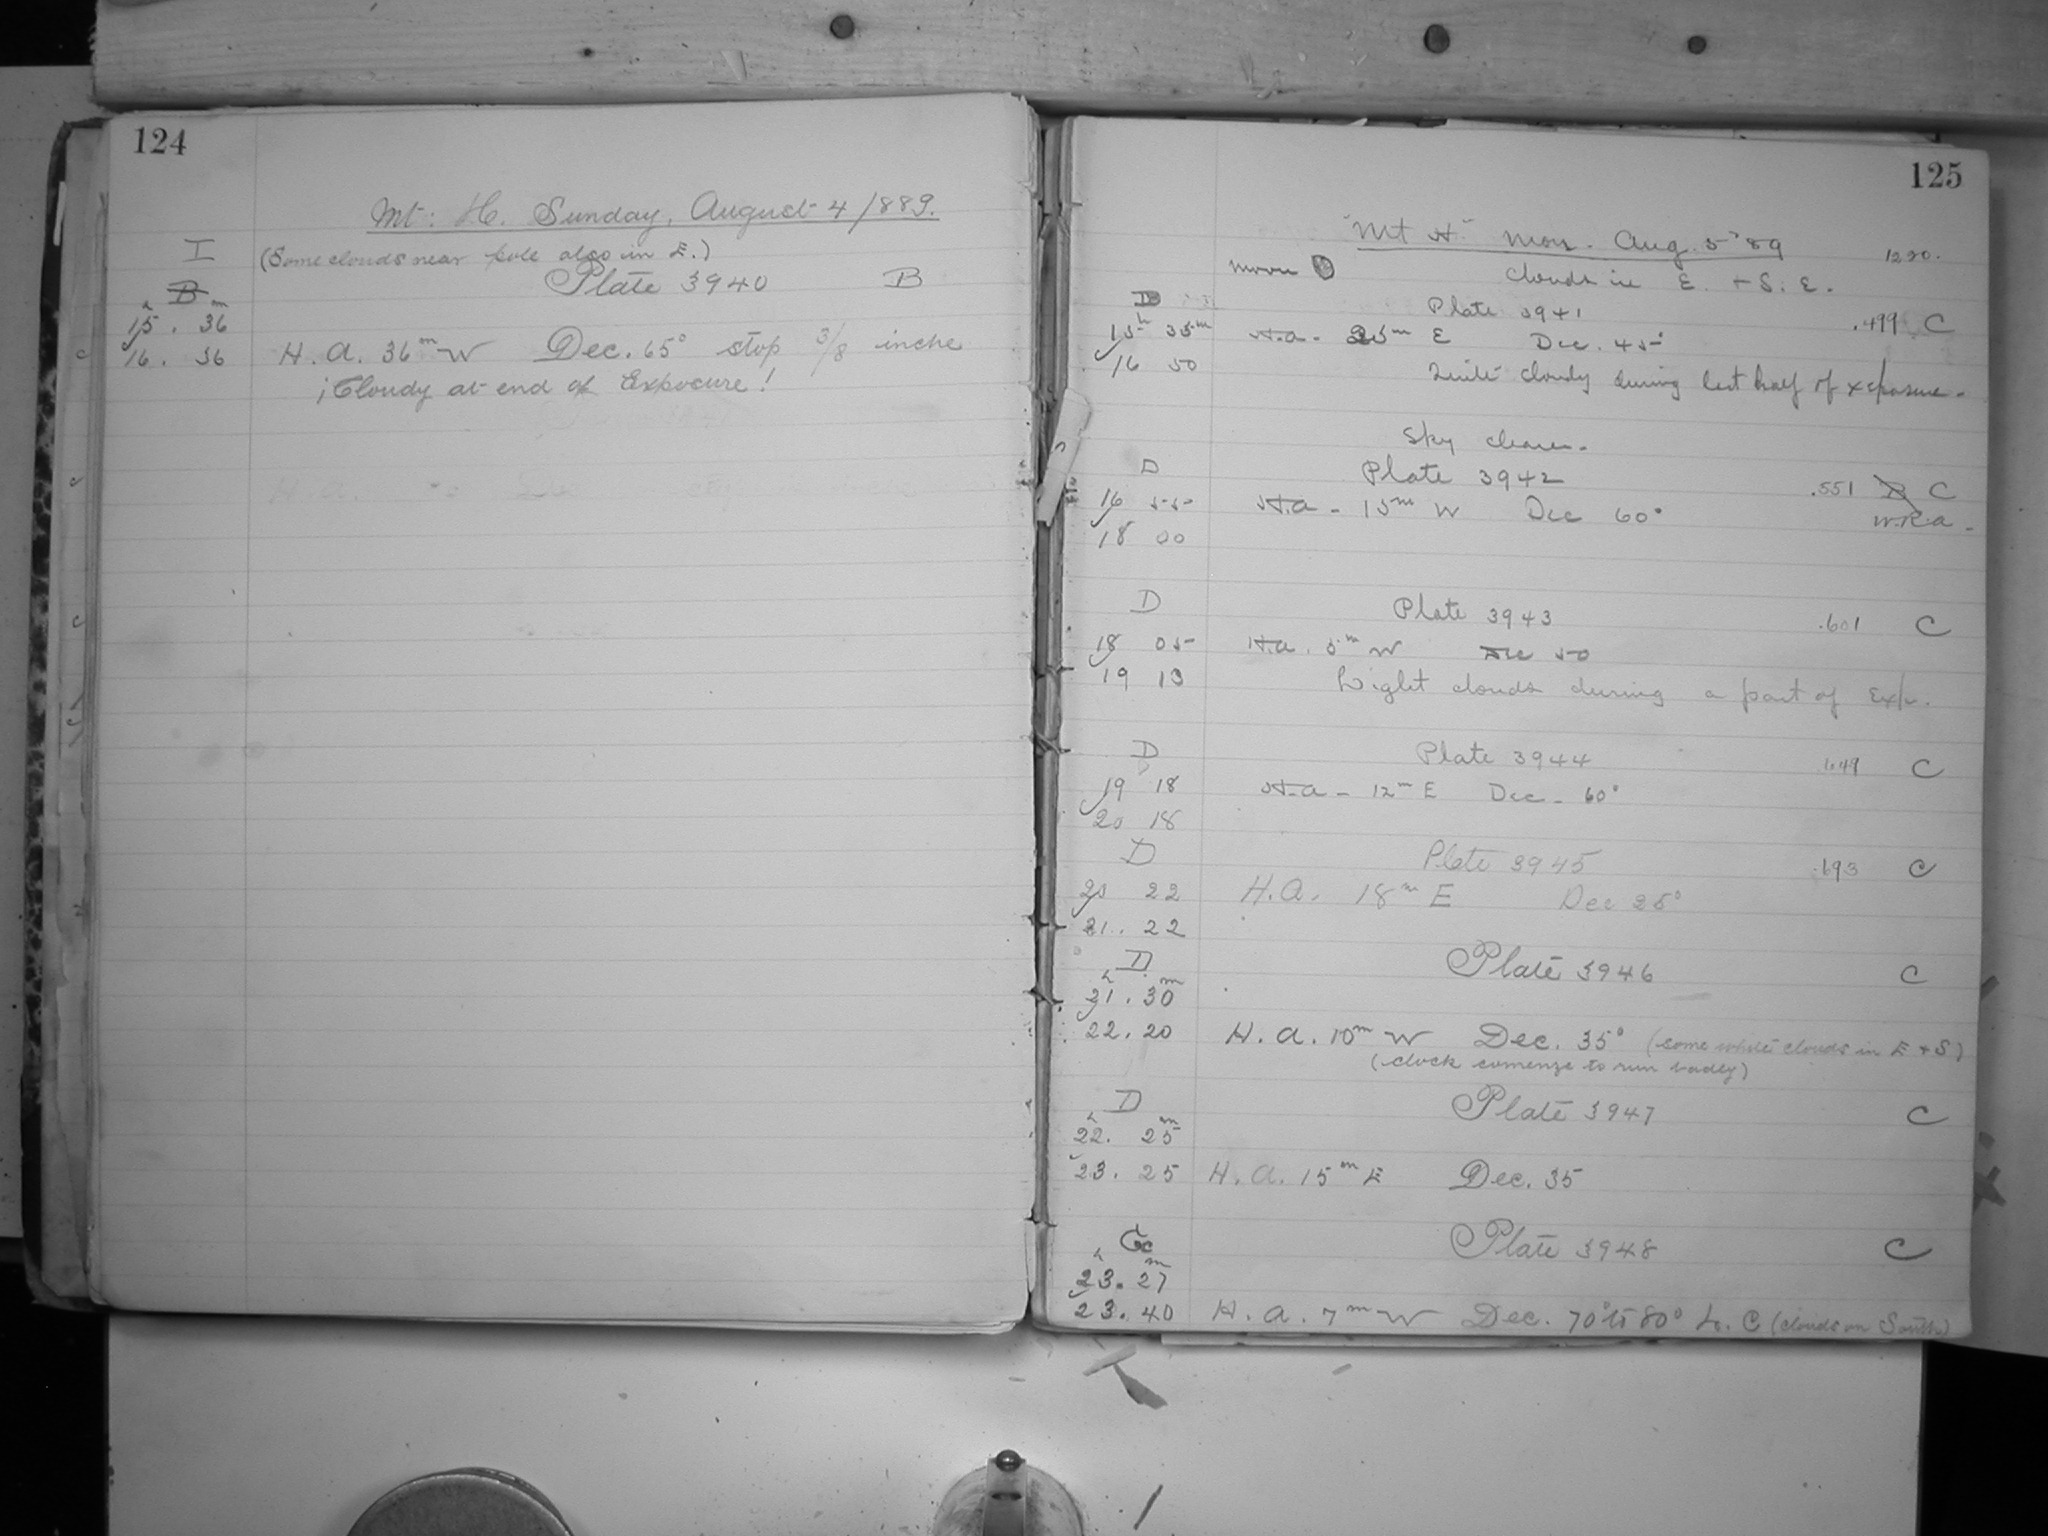 124
Mt. H. Sunday, August 4 1889.
I (Some clouds near pole also in E.)
B Plate 3940 B
h m
15. 36
16. 36 H. A. 36m W Dec. 65° stop 3/8 inche
¡Cloudy at end of Exposure!
125
"Mt H" Mon. Aug. 5 '89
moon Clouds in E. + S. E. 1220.
D Plate 3941 .499 C
15h 35m H.A. 25m E Dec. 45°
16 50 Quite cloudy during last half of exposure.
Sky clear.
D Plate 3942 .551 B C
16 55 H.A. 15m W Dec 60° W.R.A.
18 00
D Plate 3943 .601 C
18 05 H.A. 5m W Dec 50
19 13 Light clouds during a part of Exp.
D Plate 3944 .649 C
19 18 H.A. 12m E Dec. 60°
20 18
D Plate 3945 .693 C
20 22 H.A. 18m E Dec 25°
21. 22
D Plate 3946 C
h m
21. 30
22. 20 H. A. 10m W Dec. 35° (some white clouds in E + S)
(clock comenze to run badly)
D Plate 3947 C
h m
22. 25
23. 25 H. A. 15m E Dec. 35
Gc Plate 3948 C
h m
23. 27
23. 40 H. A. 7m W Dec. 70° to 80° L. C (clouds on South)